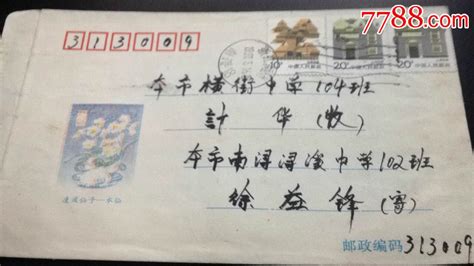 7788.com
313009
10分 中国人民邮政
20分 中国人民邮政
20分 中国人民邮政
本市横街中学104班
計华(收)
本市南浔浔溪中学102班
徐益锋(寄)
凌波仙子—水仙
邮政编码 313009